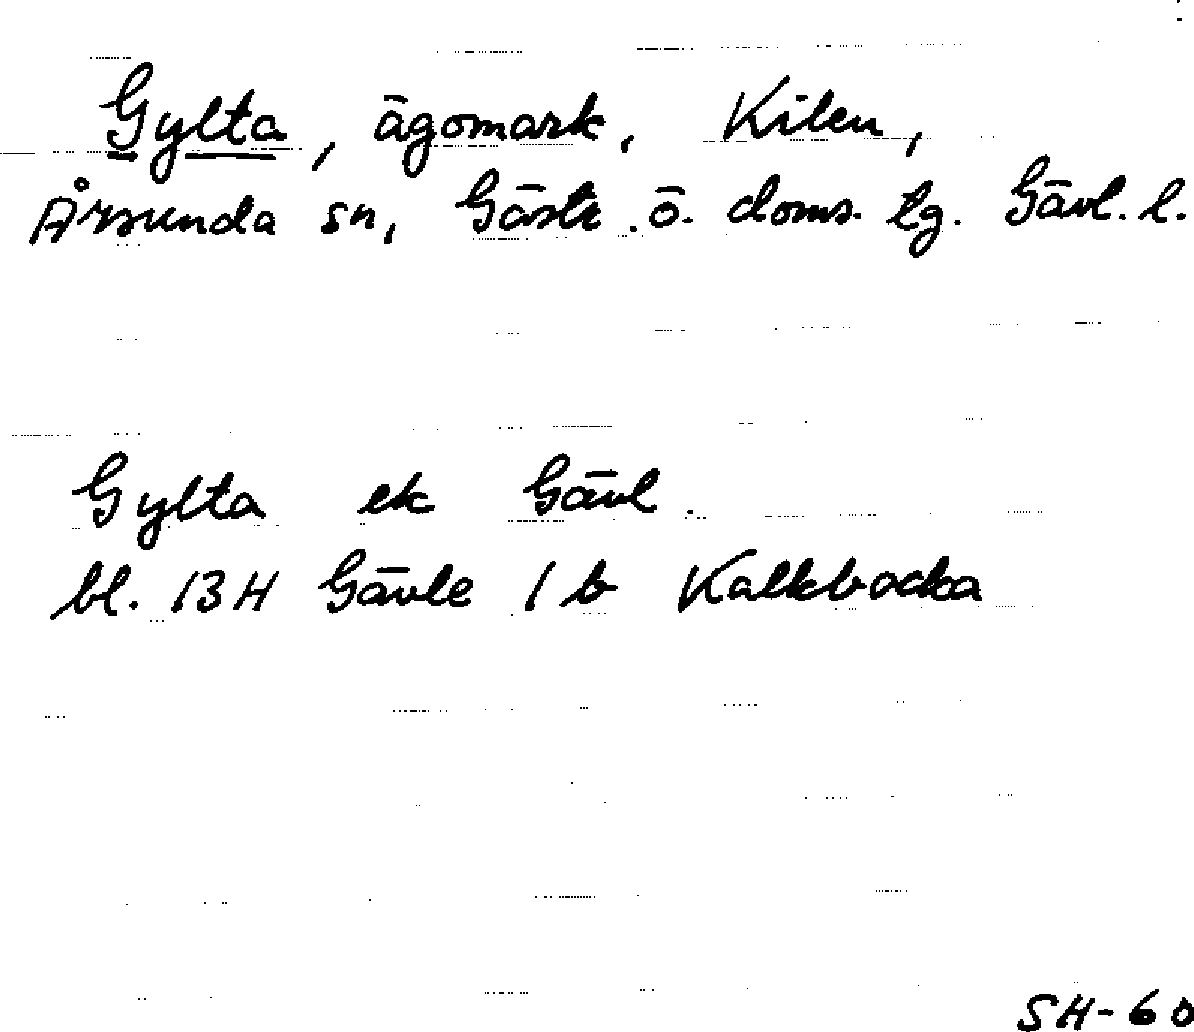 Gylta, ägomark, Kilen,
Årsunda sn, Gästr. ö. doms. lg. Gävl. l.
Gylta ek Gävl.
bl. 13H Gävle 1 b Kalkbacka
SH-60